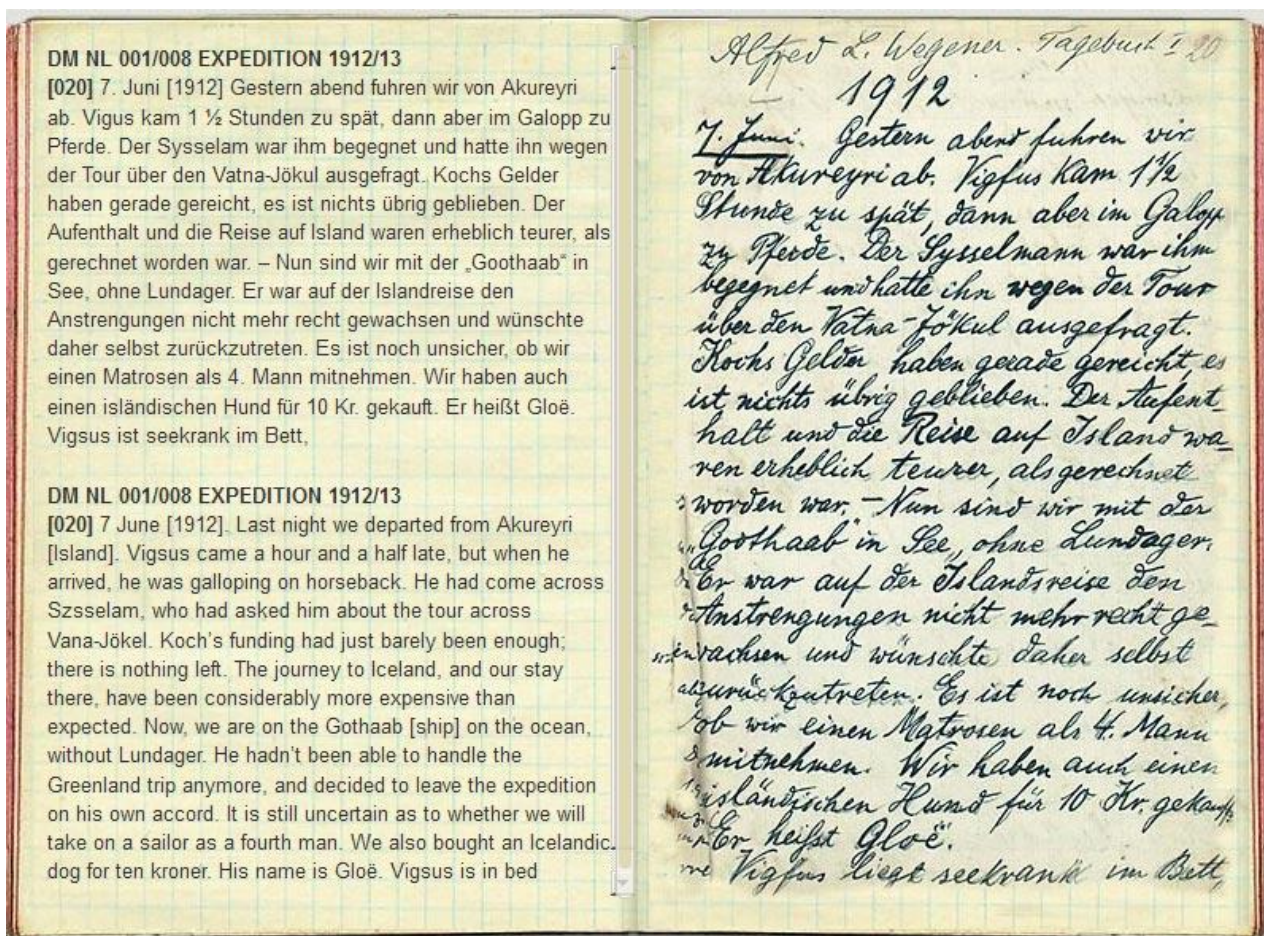 DM NL 001/008 EXPEDITION 1912/13
[020] 7. Juni [1912] Gestern abend fuhren wir von Akureyri
ab. Vigus kam 1 ½ Stunden zu spät, dann aber im Galopp zu
Pferde. Der Sysselam war ihm begegnet und hatte ihn wegen
der Tour über den Vatna-Jökul ausgefragt. Kochs Gelder
haben gerade gereicht, es ist nichts übrig geblieben. Der
Aufenthalt und die Reise auf Island waren erheblich teurer, als
gerechnet worden war. – Nun sind wir mit der „Goothaab“ in
See, ohne Lundager. Er war auf der Islandreise den
Anstrengungen nicht mehr recht gewachsen und wünschte
daher selbst zurückzutreten. Es ist noch unsicher, ob wir
einen Matrosen als 4. Mann mitnehmen. Wir haben auch
einen isländischen Hund für 10 Kr. gekauft. Er heißt Gloë.
Vigsus ist seekrank im Bett,
DM NL 001/008 EXPEDITION 1912/13
[020] 7 June [1912]. Last night we departed from Akureyri
[Island]. Vigsus came a hour and a half late, but when he
arrived, he was galloping on horseback. He had come across
Szsselam, who had asked him about the tour across
Vana-Jökel. Koch's funding had just barely been enough;
there is nothing left. The journey to Iceland, and our stay
there, have been considerably more expensive than
expected. Now, we are on the Gothaab [ship] on the ocean,
without Lundager. He hadn't been able to handle the
Greenland trip anymore, and decided to leave the expedition
on his own accord. It is still uncertain as to whether we will
take on a sailor as a fourth man. We also bought an Icelandic
dog for ten kroner. His name is Gloë. Vigsus is in bed
Alfred L. Wegener. Tagebuch I 20
1912
7. Juni. Gestern abend fuhren wir
von Akureyri ab. Vigfus kam 1 ½
Stunde zu spät, dann aber im Galopp
zu Pferde. Der Sysselmann war ihm
begegnet und hatte ihn wegen der Tour
über den Vatna-Jökul ausgefragt.
Kochs Gelder haben gerade gereicht, es
ist nichts übrig geblieben. Der Aufent-
halt und die Reise auf Island wa-
ren erheblich teurer, als gerechnet
worden war. – Nun sind wir mit der
„Goothaab“ in See, ohne Lundager.
Er war auf der Islandsreise den
Anstrengungen nicht mehr recht ge-
wachsen und wünschte daher selbst
zurückzutreten. Es ist noch unsicher,
ob wir einen Matrosen als 4. Mann
mitnehmen. Wir haben auch einen
isländischen Hund für 10 Kr. gekauft.
Er heißt Gloë.
Vigfus liegt seekrank im Bett,